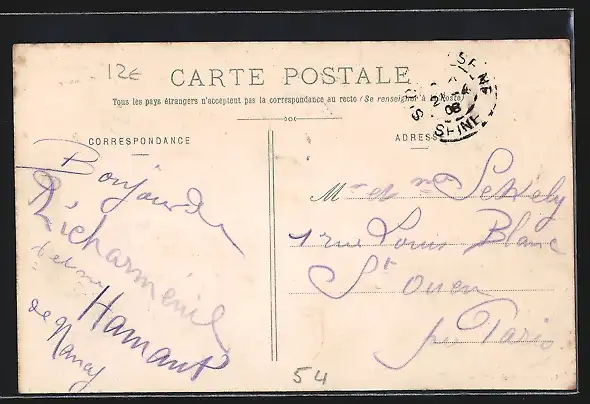 12€
CARTE POSTALE
Tous les pays étrangers n'acceptent pas la correspondance au recto (Se renseigner à la Poste)
CORRESPONDANCE
ADRESSE
SEINE
08
Bonjour de
Richarménil
Mr et me
Hamant
de Nancy
Mr et me Sekely
1 rue Louis Blanc
St Ouen
près Paris
54